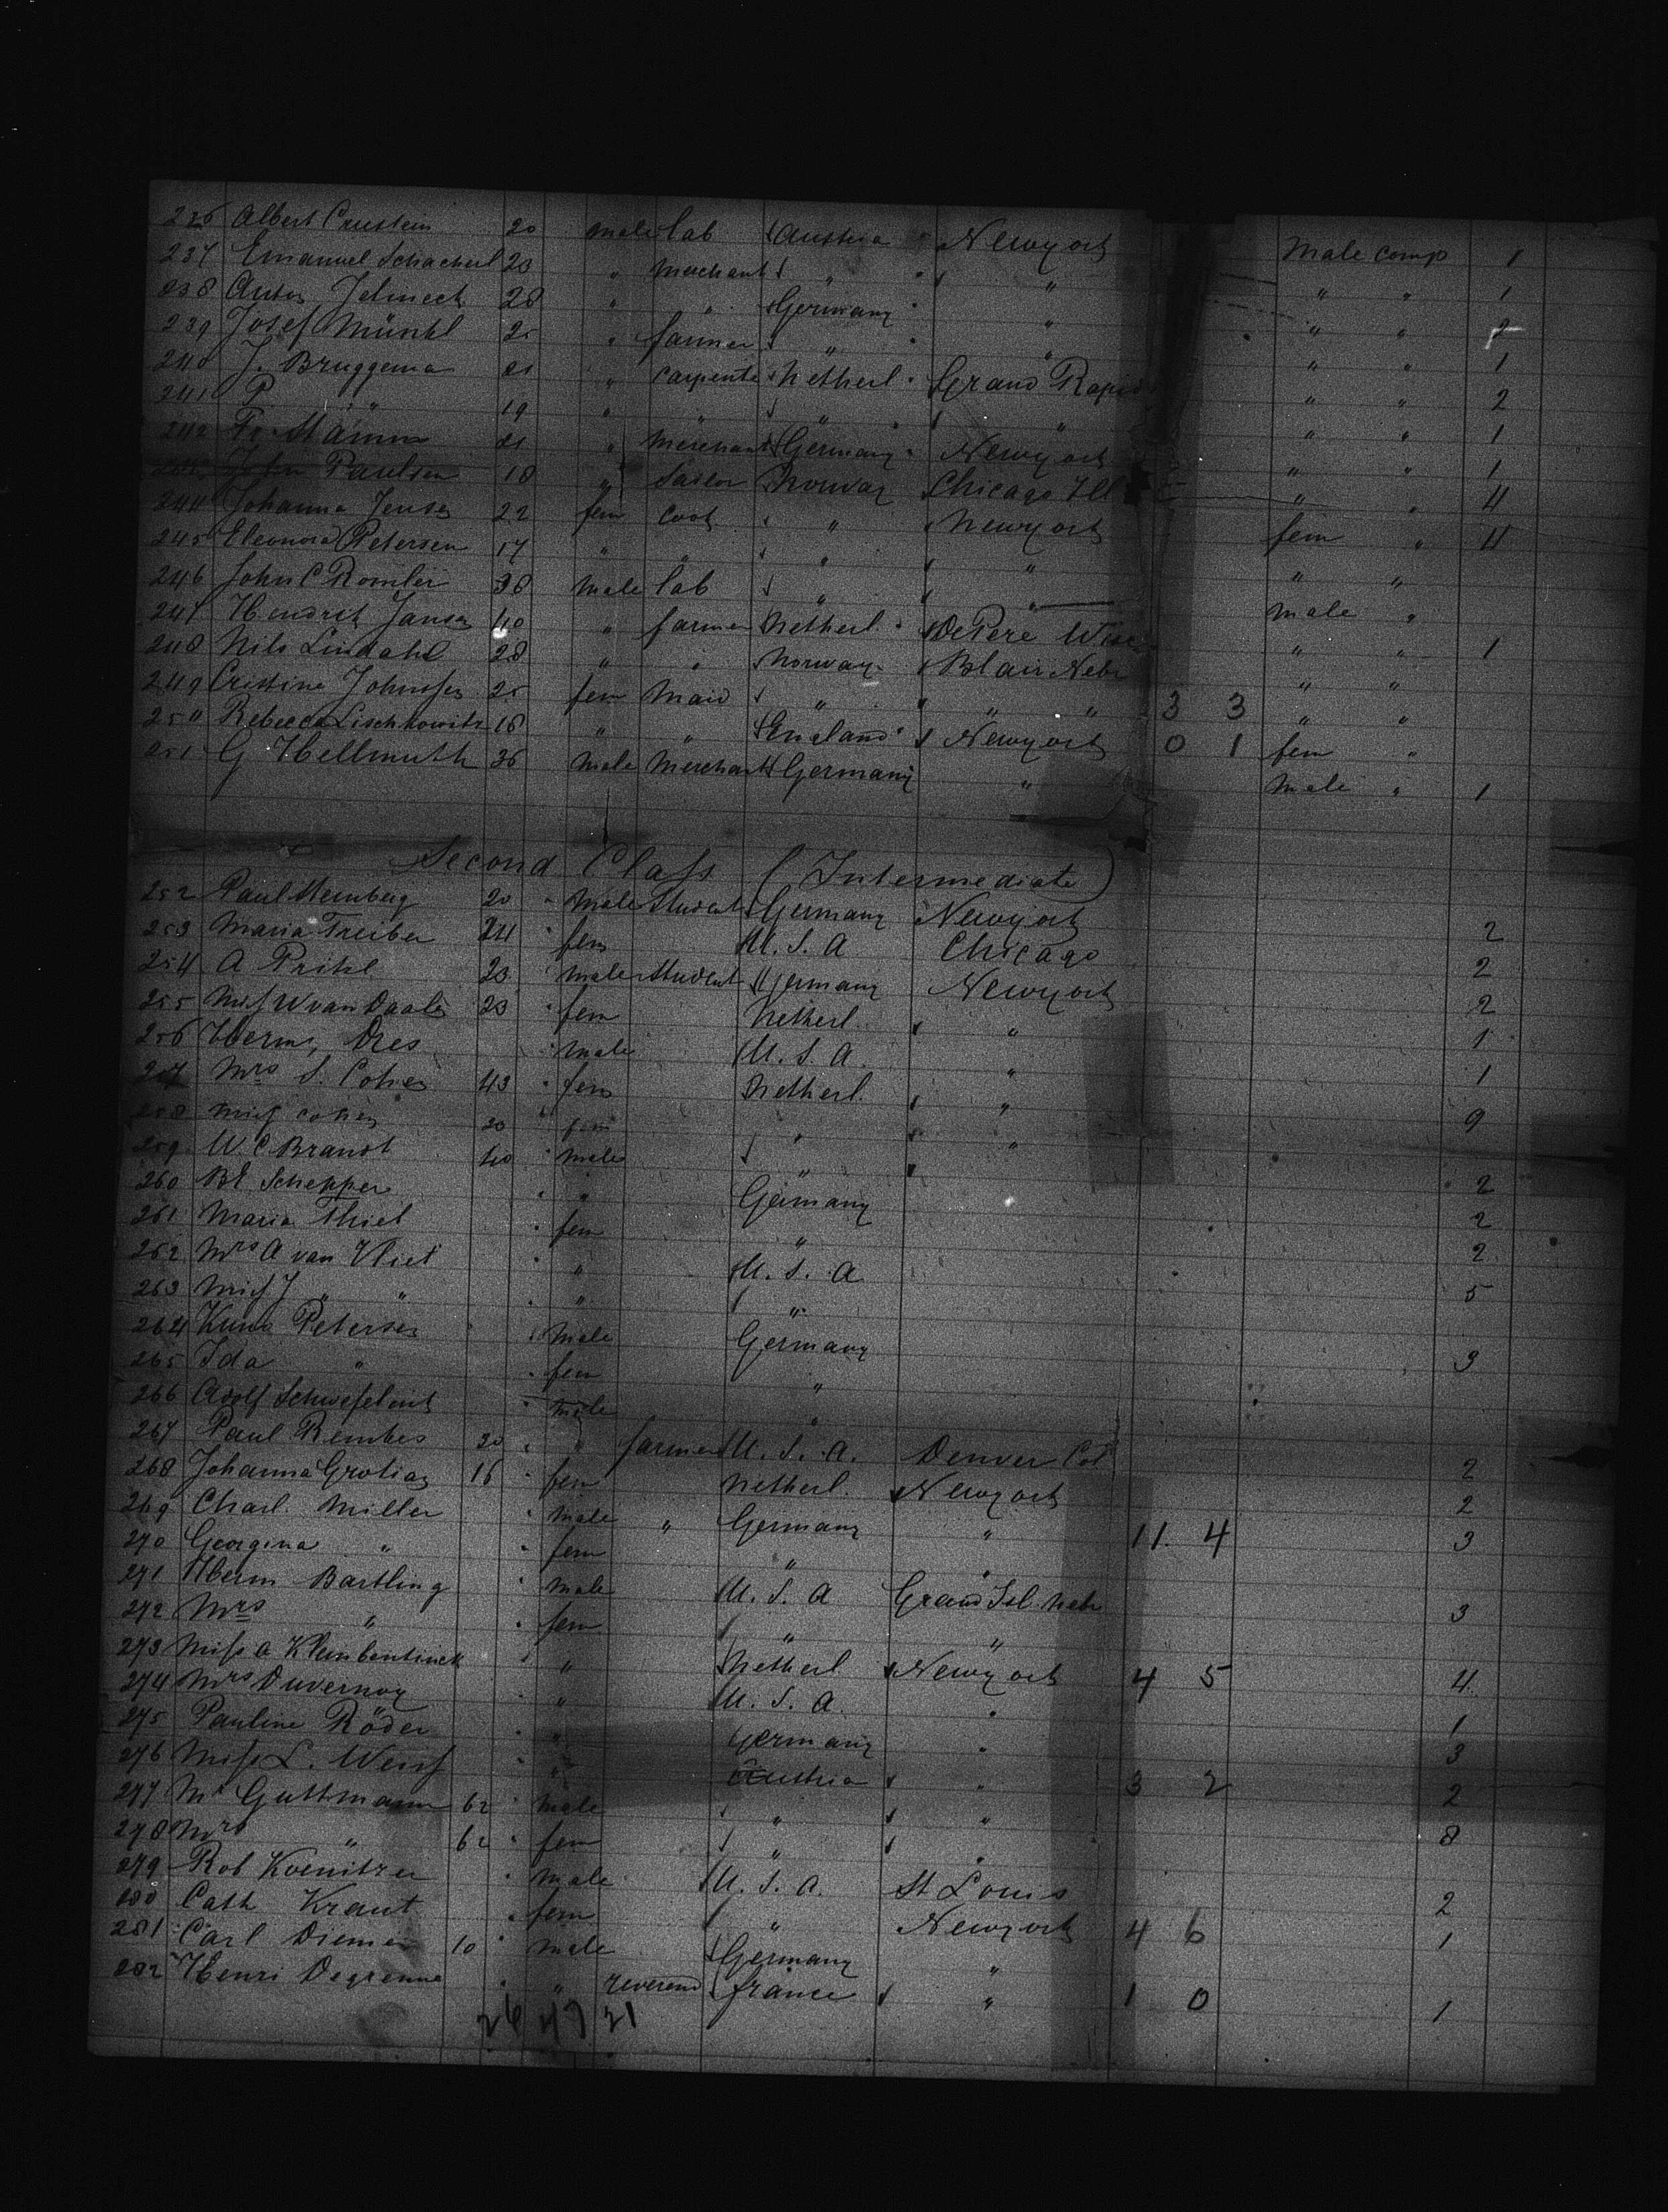 Albert 20 male lab Austria Newyork Male comp 1
237 Emanuel Schacherl 23 " merchant " " " " 1
238 Anton Jelineck 28 " " Germany " " " 2
239 Josef Münkl 25 " farmer " " " " 1
240 J. Bruggema 21 " carpenter Netherl. Grand Rapids " " 2
241 P " 19 " " " " " " 1
242 Fr. Stamm 21 " merchant Germany Newyork " " 1
John Paulsen 18 " Sailor Norway Chicago Ill " " 4
244 Johanna Jensen 22 fem Cook " Newyork fem " 4
245 Eleonora Petersen 17 " " " " " "
246 John C 38 male lab " " male "
247 Hendrik Jansen 40 " farmer Netherl. DePere Wisc " " 1
248 Nils Lindahl 28 " " Norway Blair Nebr " "
249 Cristine Johnssen 25 fem Maid " " " 3 3 " "
250 Rebecca Lischkowitz 18 " " England Newyork 0 1 fem "
251 G Hellmuth 36 male Merchant Germany " Male " 1
Second Class (Intermediate)
252 Paul Sternberg 20 male Student Germany Newyork 2
253 Maria Treiber 24 fem U.S.A Chicago 2
254 A 23 male Student Germany Newyork 2
255 Miss W van Daale 23 fem Netherl. " 1
256 Herm, Dres male U.S.A. " 1
257 Mrs S. Cohen 43 fem Netherl. " 9
258 Miss Cohen 20 fem " "
259 W. C Brandt 40 male " 2
260 Schepper " Germany 2
261 Maria Thiel fem " 2
262 Mrs A van Vliet " U.S.A 5
263 Miss J " " " "
264 Kuno Petersen Male Germany 3
265 Ida " fem "
266 Adolf male "
267 Paul Rembes 30 " farmer U.S.A. Denver Col 2
268 Johanna Grotian 16 fem Netherl. Newyork 2
269 Charl. Miller male " Germany " 11. 4 3
270 Georgina " fem " "
271 Herm Bartling male U.S.A Grand Isl. Nebr 3
272 Mrs " fem " "
273 Miss A " Netherl. Newyork 4 5 4
274 Mrs Duvernoy " U.S.A. " 1
275 Pauline Röder " Germany " 3
276 Miss L. Weiss " Austria " 3 2 2
277 Mr Guttmann 62 male " " 8
278 Mrs " 62 fem " "
279 Rob Koenitzer male U.S.A. St Louis 2
280 Cath Kraut fem " Newyork 4 6 1
281 Carl Diemer 10 male Germany "
282 Henri Degrenne " reverend france " 1 0 1
26 47 21